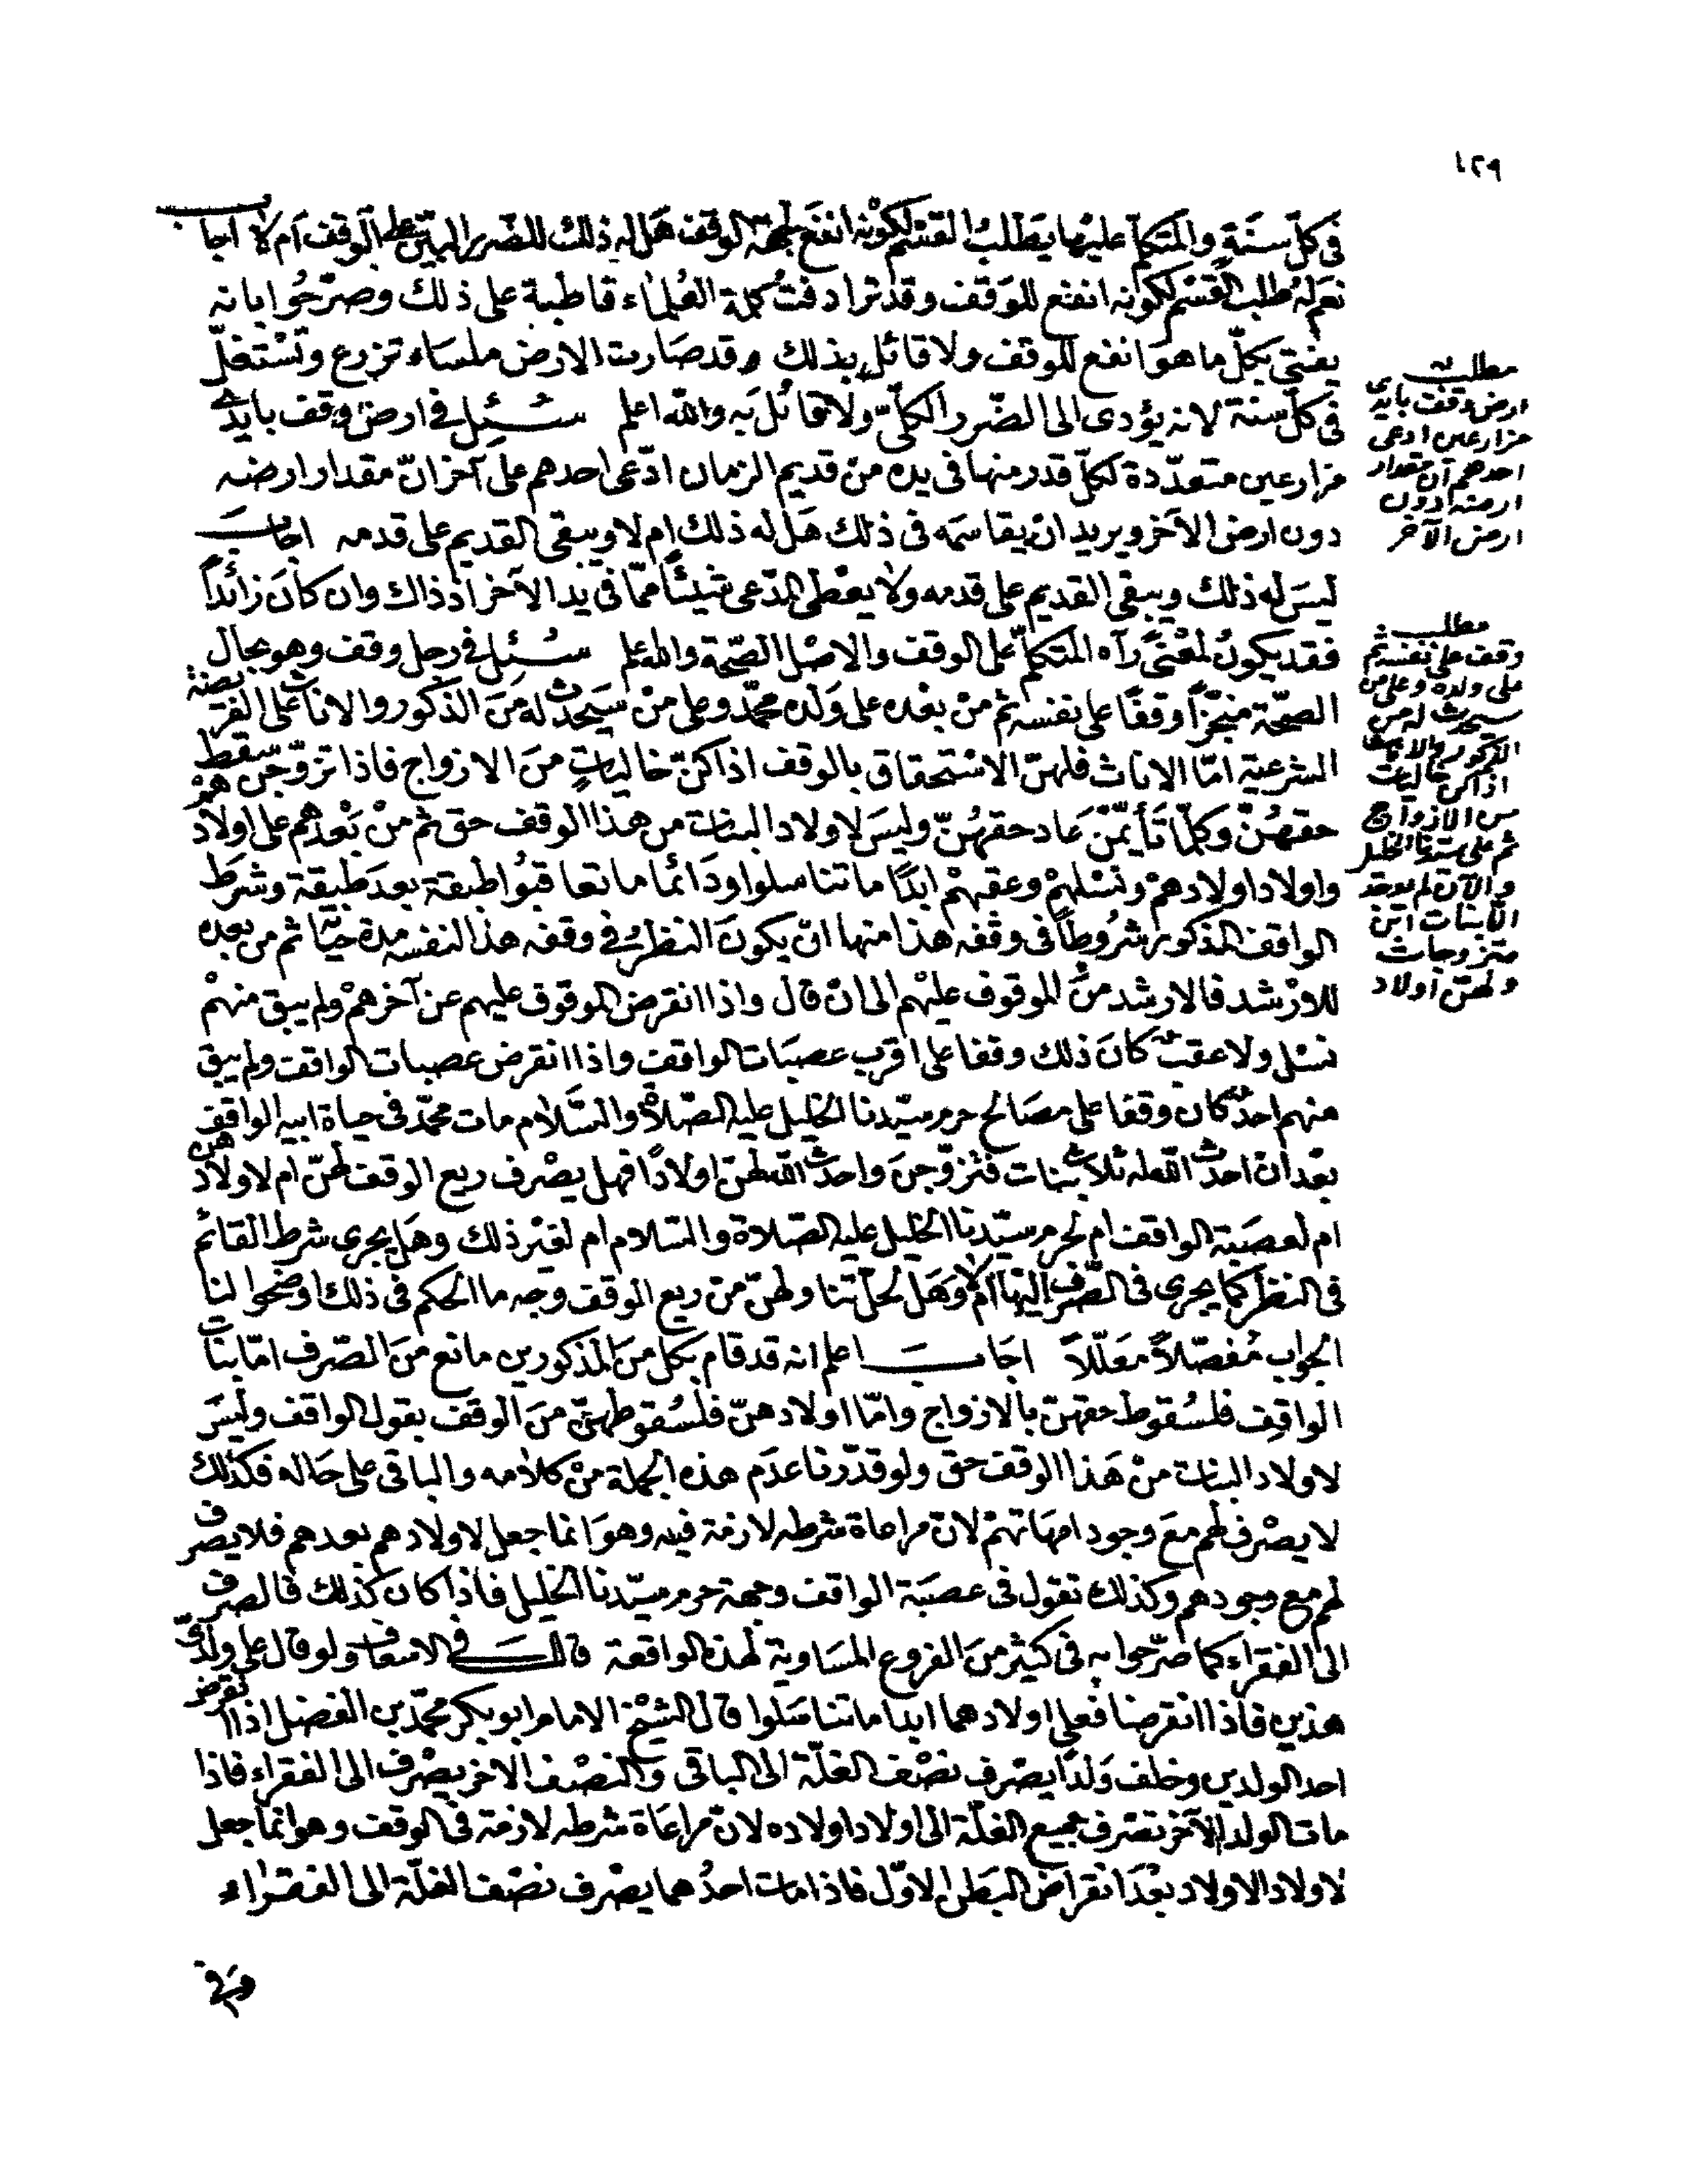 ١٢٩
في كلّ سنة والمتكلم عليها يطلب القسم لكونه انفع لجهة الوقف هل له ذلك للضرر البين على الوقف ام لا اجاب
نعم له طلب القسم لكونه انفع للوقف وقد ترادفت كلمة العلماء قاطبة على ذلك وصرّحوا بانه
يفتى بكلّ ما هو انفع للوقف ولا قائل بذلك وقد صارت الارض ملساء تزرع وتستغلّ
في كل سنة لانه يؤدى الى الضّرر الكلّي ولا قائل به والله اعلم سئل في ارض وقف بايدى
مزارعين متعدّدة لكلّ قدر منها في يده من قديم الزمان ادّعى احدهم على آخر انّ مقدار ارضه
دون ارض الآخر ويريد ان يقاسمه في ذلك هل له ذلك ام لا ويبقى القديم على قدمه اجاب
ليس له ذلك ويبقى القديم على قدمه ولا يعطى المدّعى شيئًا ممّا في يد الآخر اذ ذاك وان كان زائدًا
فقد يكون لمعنًى رآه المتكلّم على الوقف والاصل الصّحة والله اعلم سئل في رجل وقف وهو بحال
الصّحّة منجّزًا وقفًا على نفسه ثم من بعده على ولده محمّد وعلى من سيحدث له من الذكور والاناث على الفريضة
الشرعية امّا الاناث فلهنّ الاستحقاق بالوقف اذا كنّ خاليات من الازواج فاذا تزوّجن سقط
حقهنّ وكلّما تأيمّن عاد حقهنّ وليس لاولاد البنات من هذا الوقف حق ثم من بعدهم على اولادهم
واولاد اولادهم ونسلهم وعقبهم ابدًا ما تناسلوا ودائما ما تعاقبوا طبقة بعد طبقة وشرط
الواقف المذكور شروطًا في وقفه هذا منها ان يكون النظر في وقفه هذا لنفسه مدة حياته ثم من بعده
للارشد فالارشد من الموقوف عليهم الى ان قال واذا انقرض الموقوف عليهم عن آخرهم ولم يبق منهم
نسل ولا عقب كان ذلك وقفا على اقرب عصبات الواقف واذا انقرض عصبات الواقف ولم يبق
منهم احد كان وقفا على مصالح حرم سيّدنا الخليل عليه الصّلاة والسّلام مات محمّد في حياة ابيه الواقف
بعد ان احدث الله له ثلاث بنات فتزوّجن واحدث الله لهنّ اولادًا فهل يصرف ريع الوقف لهنّ ام لاولادهن
ام لعصبة الواقف ام لحرم سيّدنا الخليل عليه الصّلاة والسّلام ام لغير ذلك وهل يجرى شرط القائم
في النظر كما يجرى في الصّرف اليها ام لا وهل يحلّ تناولهنّ من ريع الوقف وجه ما الحكم في ذلك اوضحوا لنا
الجواب مفصّلاً معلّلاً اجاب اعلم انه قد قام بكل من المذكورين مانع من الصّرف امّا بنات
الواقف فلسقوط حقهنّ بالازواج وامّا اولادهنّ فلسقوطهنّ من الوقف بقول الواقف وليس
لاولاد البنات من هذا الوقف حق ولو قدّرنا عدم هذه الجملة من كلامه والباقى على حاله فكذلك
لا يصرف لهم مع وجود امهاتهم لانّ مراعاة شرطه لازمة فيه وهو انما جعل لاولادهم بعدهم فلا يصرف
لهم مع وجودهم وكذلك نقول في عصبة الواقف وجهة حرم سيّدنا الخليل فاذا كان كذلك فالصرف
الى الفقراء كما صرّحوا به في كثير من الفروع المساوية لهذه الواقعة قال في الاسعاف ولو قال على ولديّ
هذين فاذا انقرضا فعلى اولادهما ابدا ما تناسلوا قال الشيخ الامام ابو بكر محمّد بن الفضل اذا انقرض
احد الولدين وخلف ولدًا يصرف نصف الغلّة الى الباقى والنصف الاخر يصرف الى الفقراء فاذا
مات الولد الآخر تصرف جميع الغلّة الى اولاد اولاده لانّ مراعاة شرطه لازمة في الوقف وهو انما جعل
لاولاد الاولاد بعد انقراض البطن الاوّل فاذا مات احدهما يصرف نصف الغلّة الى الفقراء
وفي
مطلب
ارض وقف بايدى
مزارعين ادعى
احدهم ان مقدار
ارضه دون
ارض الآخر
مطلب
وقف على نفسه ثم
على ولده وعلى من
سيحدث له من
الذكور والاناث
اذا كن خاليات
من الازواج
ثم على سيدنا الخليل
والآن لم يوجد
الا بنات ابن
متزوجات
ولهنّ اولاد